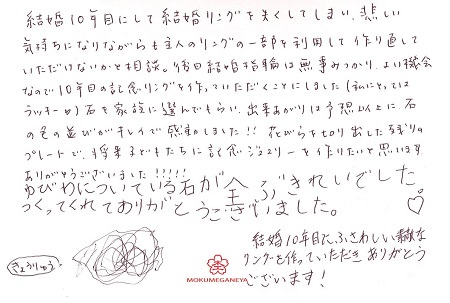 結婚10年目にして結婚リングを失くしてしまい、悲しい
気持ちになりながらも主人のリングの一部を利用して作り直して
いただけないかと相談。後日結婚指輪は無事みつかり、よい機会
なので10年目の記念リングを作っていただくことにしました(私にとっては
ラッキー♡)石を家族に選んでもらい、出来あがりは予想以上に石
の色の並びがキレイで感激しました!!花びらを切り出した残りの
プレートで、将来子どもたちに記念ジュエリーを作りたいと思います
ありがとうございました!!!!!
ゆびわについている石が全ぶきれいでした
つくってくれてありがとうございました。
きょうりゅう
結婚10年目にふさわしい素敵な
リングを作っていただきありがとう
ございます!
MOKUMEGANEYA